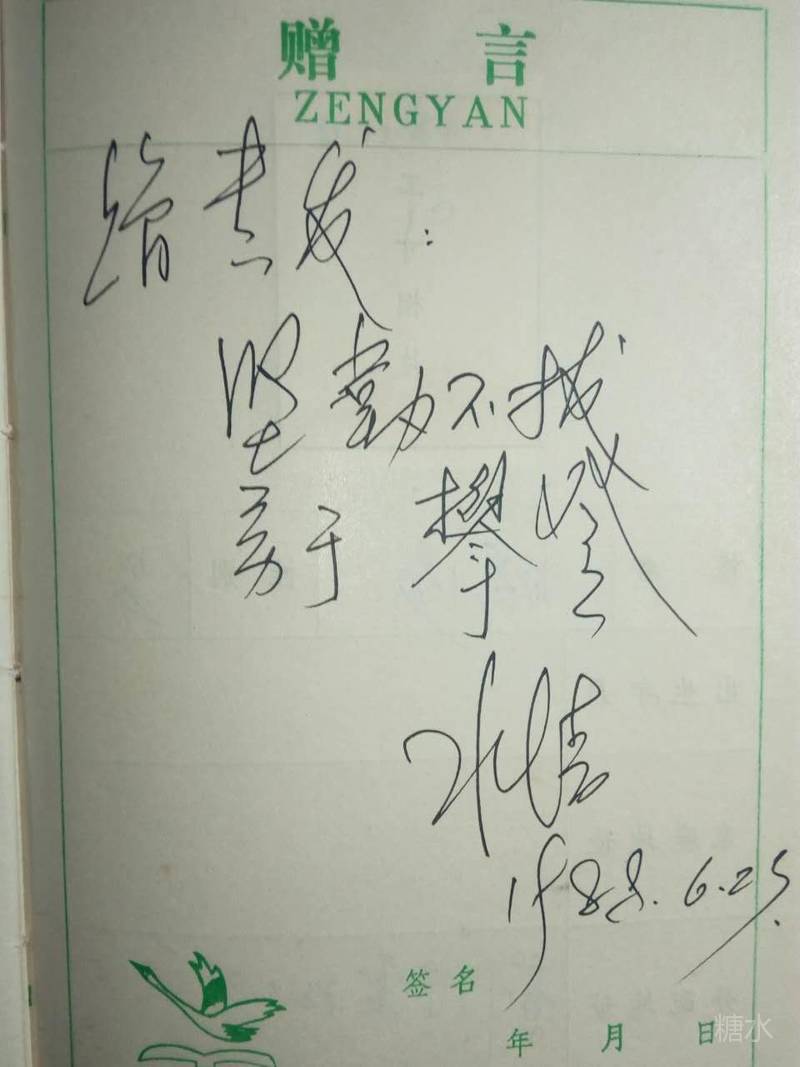 赠 言
ZENGYAN
赠志成：
坚勤不拔
勇于攀登
水清
1988.6.25.
签名
年 月 日
糖水